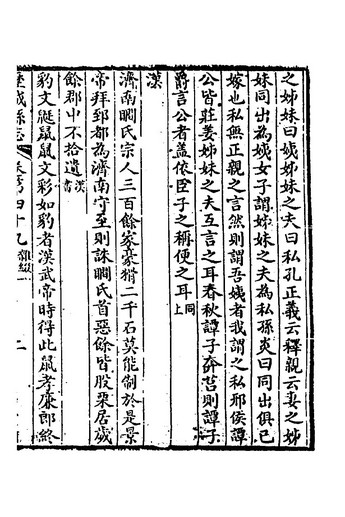 之姊妹曰姨姊妹之夫曰私孔正義云釋親云妻之姊
妹同出為姨女子謂姊妹之夫為私孫炎曰同出俱已
嫁也私無正親之言然則謂吾姨者我謂之私邢侯譚
公皆莊姜姊妹之夫互言之耳春秋譚子奔莒則譚子
爵言公者蓋依臣子之稱便之耳同上
漢
濟南瞯氏宗人三百餘家豪猾二千石莫能制於是景
帝拜郅都為濟南守至則誅瞯氏首惡餘皆股栗居歲
餘郡中不拾遺漢書
豹文鼮鼠鼠文彩如豹者漢武帝時得此鼠孝廉郎終
歷城縣志 卷第四十九 雜綴一 二